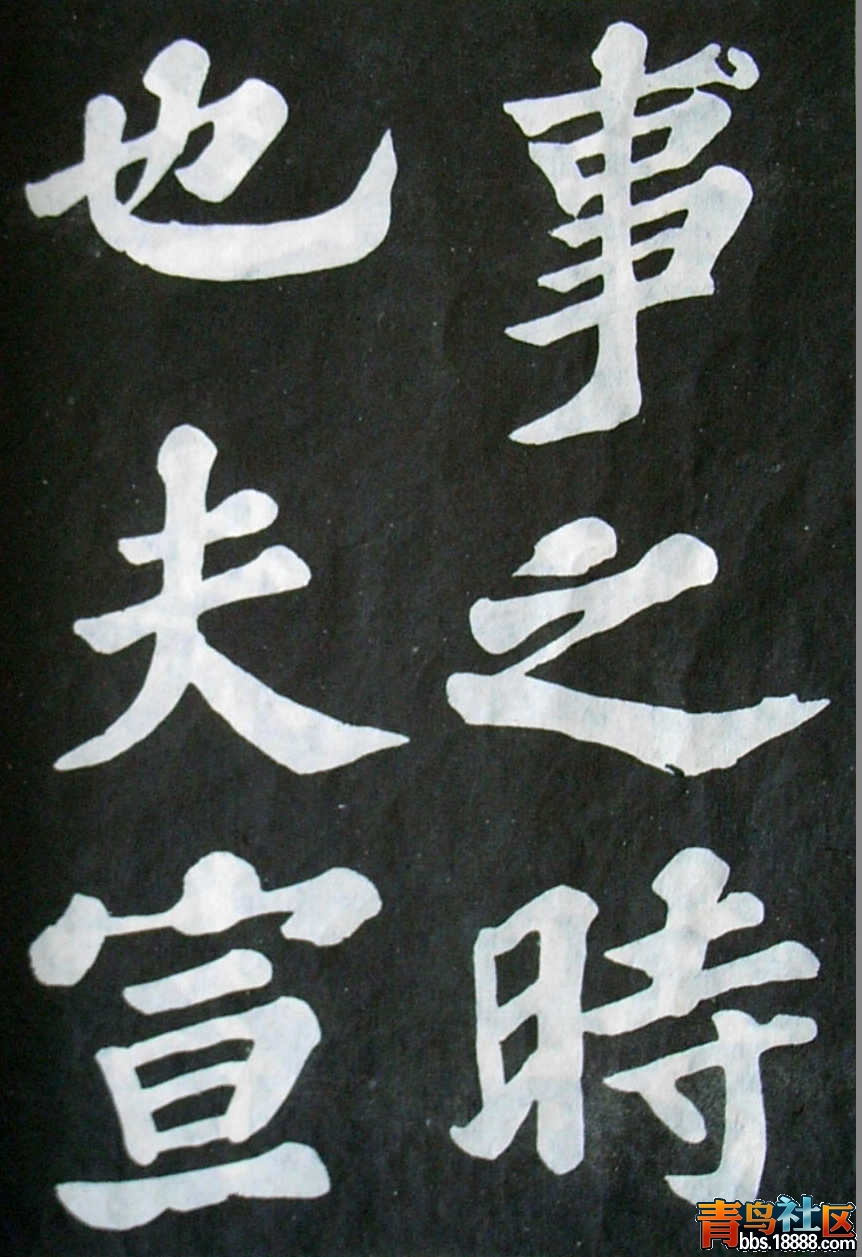 事之時
也夫宣
青鸟社区
bbs.18888.com